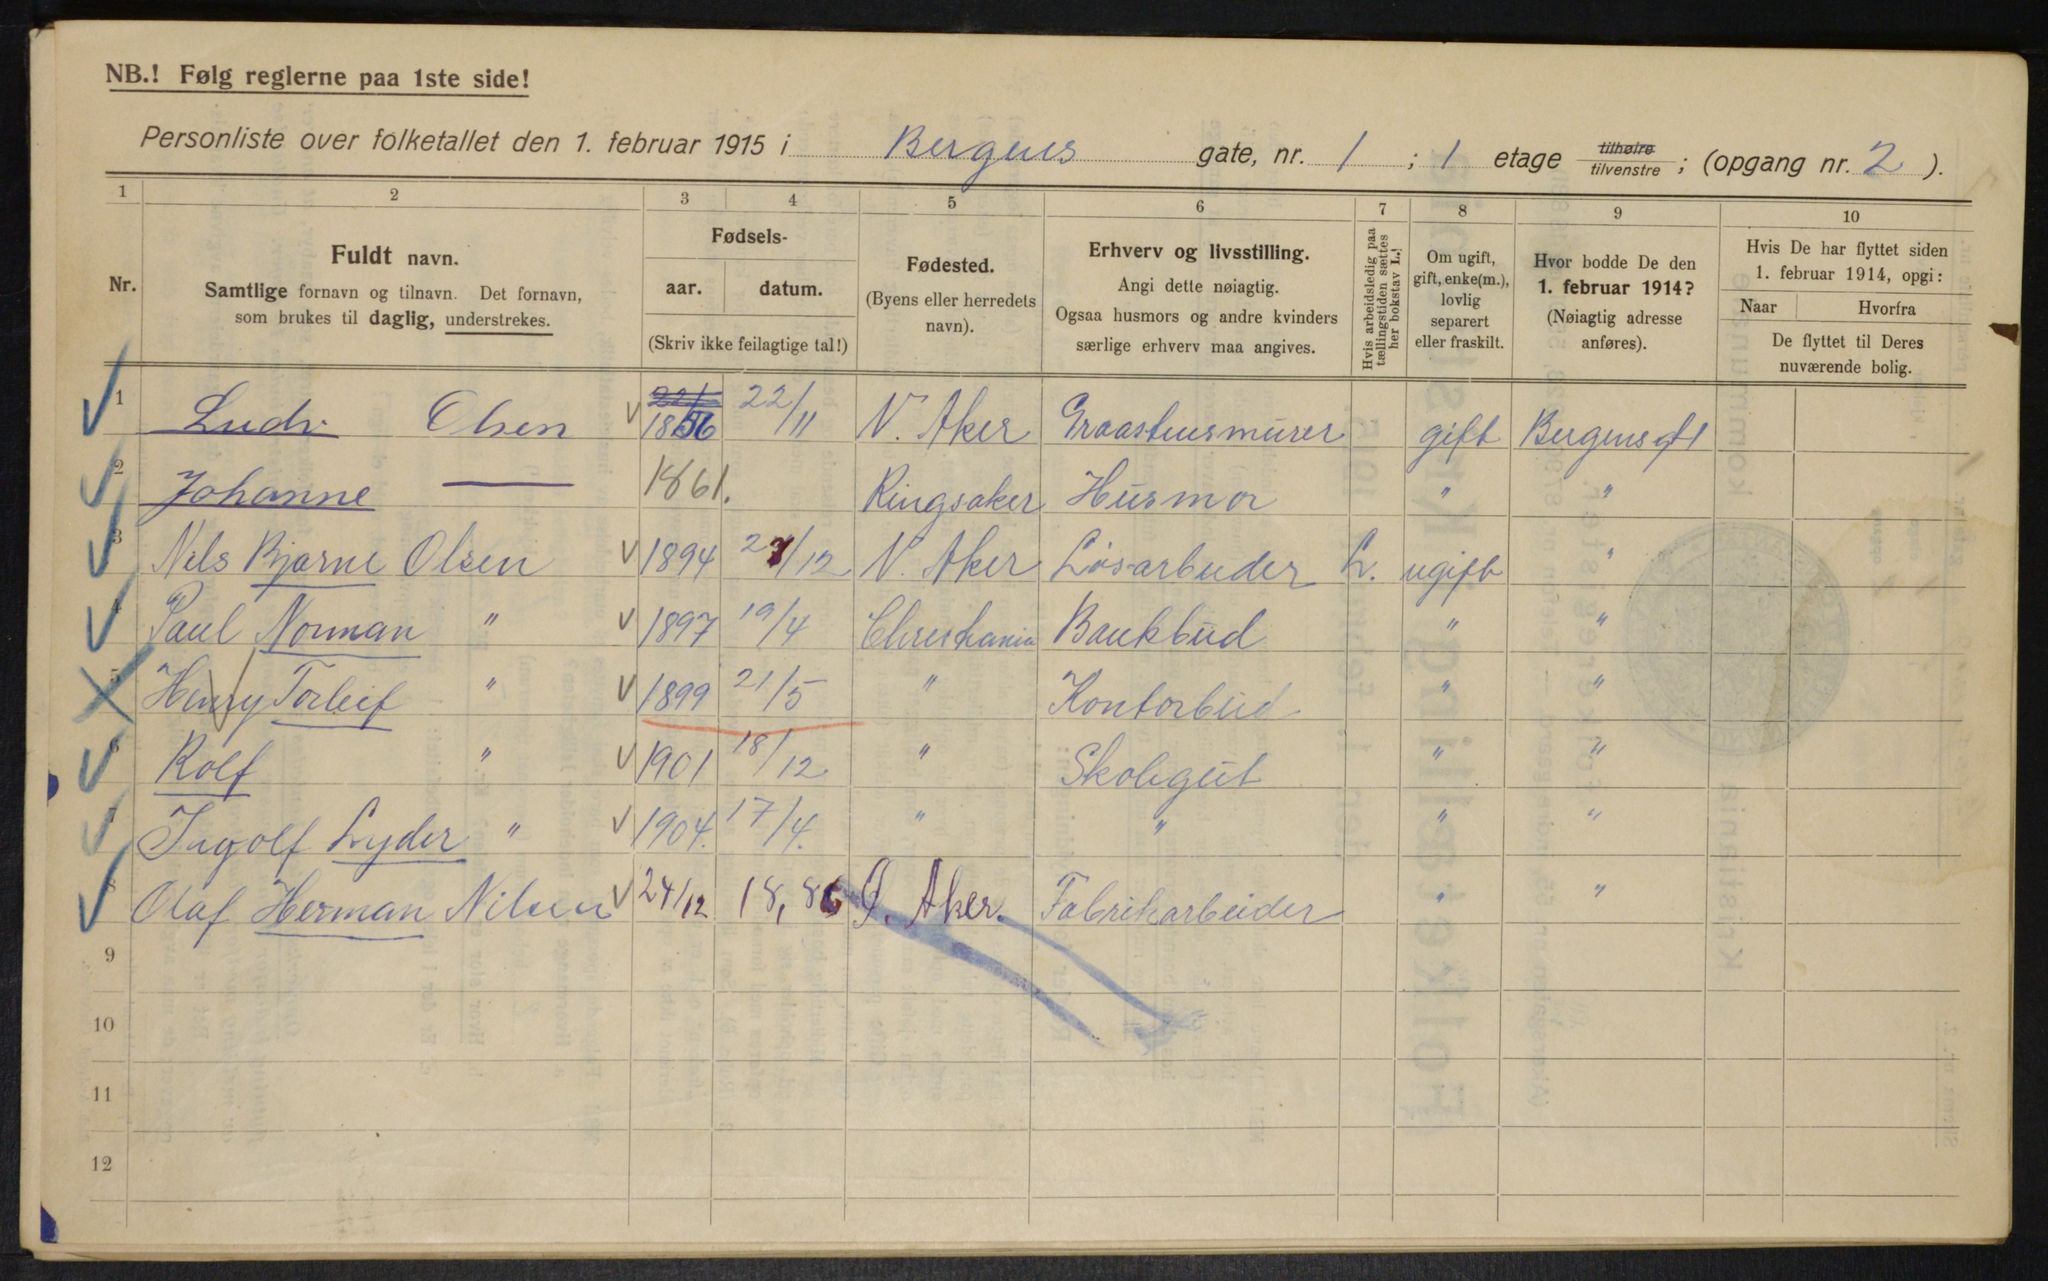 NB.! Følg reglerne paa 1ste side!
Personliste over folketallet den 1. februar 1915 i Bergens gate, nr. 1 ; 1 etage tilhøire tilvenstre ; (opgang nr. 2 ).
1 2 3 4 5 6 7 8 9 10
Nr.
Fuldt navn.
Samtlige fornavn og tilnavn. Det fornavn,
som brukes til daglig, understrekes.
Fødsels-
aar. datum.
(Skriv ikke feilagtige tal!)
Fødested.
(Byens eller herredets
navn).
Erhverv og livsstilling.
Angi dette nøiagtig.
Ogsaa husmors og andre kvinders
særlige erhverv maa angives.
Hvis arbeidsledig paa
tællingstiden sættes
her bokstav L.!
Om ugift,
gift, enke(m.),
lovlig
separert
eller fraskilt.
Hvor bodde De den
1. februar 1914?
(Nøiagtig adresse
anføres).
Hvis De har flyttet siden
1. februar 1914, opgi:
Naar Hvorfra
De flyttet til Deres
nuværende bolig.
1 Ludv Olsen 1856 22/11 V. Aker Graastensmurer gift Bergensgt 1
2 Johanne — 1861. Ringsaker Husmor " "
3 Nels Bjarne Olsen 1894 /12 V. Aker Løsarbeider L. ugift "
4 Paul Norman " 1897 19/4 Christiania Bankbud " "
5 Henry Torleif " 1899 21/5 " Kontorbud " "
6 Rolf " 1901 18/12 " Skolegut " "
7 Ingolf Lyder " 1904. 17/4. " " " "
8 Olaf Herman Nilsen 24/12 18,86 Ø. Aker. Fabrikarbeider " "
9
10
11
12